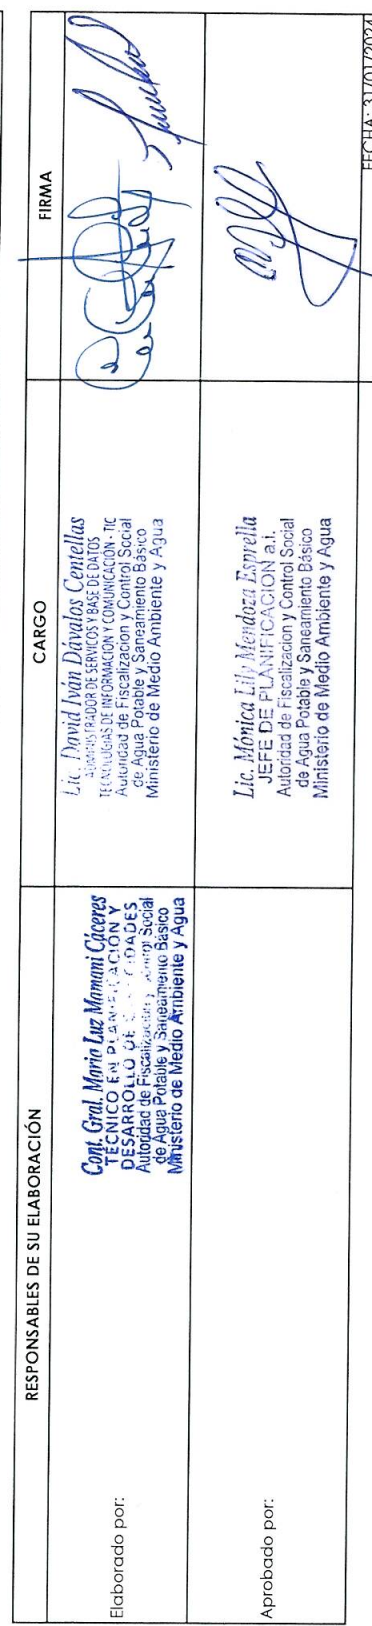 RESPONSABLES DE SU ELABORACIÓN
CARGO
FIRMA
Elaborado por:
Cont. Gral. Maria Luz Mamani Cáceres
TÉCNICO EN PLANIFICACIÓN Y
DESARROLLO DE
Autoridad de Fiscalización y Control Social
de Agua Potable y Saneamiento Básico
Ministerio de Medio Ambiente y Agua
Lic. David Iván Dávalos Centellas
ADMINISTRADOR DE SERVICOS Y BASE DE DATOS
TECNOLOGIAS DE INFORMACION Y COMUNICACIÓN - TIC
Autoridad de Fiscalizacion y Control Social
de Agua Potable y Saneamiento Básico
Ministerio de Medio Ambiente y Agua
Aprobado por:
Lic. Mónica Lily Mendoza Esprella
JEFE DE PLANIFICACION a.i.
Autoridad de Fiscalizacion y Control Social
de Agua Potable y Saneamiento Básico
Ministerio de Medio Ambiente y Agua
FECHA: 31/01/2024